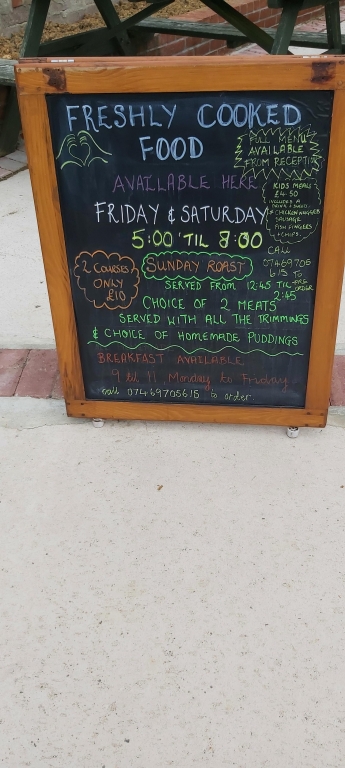 FRESHLY COOKED
FOOD
FULL MENU
AVAILABLE
FROM RECEPTION
AVAILABLE HERE
KIDS MEAL
£4.50
INCLUDES A
FRIDAY & SATURDAY
CHICKEN NUGGETS
SAUSAGE
FISH FINGERS
& CHIPS.
5:00 'TIL 8:00
CALL
07469705
615 TO
PRE
ORDER
2 COURSES
ONLY
£10
SUNDAY ROAST
SERVED FROM 12:45 TIL
2:45
CHOICE OF 2 MEATS
SERVED WITH ALL THE TRIMMINGS
& CHOICE OF HOMEMADE PUDDINGS
BREAKFAST AVAILABLE
9 til 11 Monday to Friday
call 07469705615 to order.